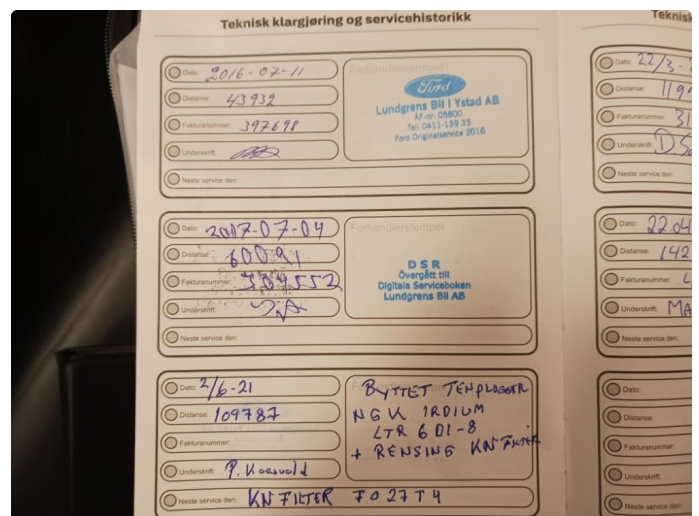 Teknisk klargjøring og servicehistorikk
Dato: 2016-07-11
Distanse: 43932
Fakturanummer: 397698
Underskrift:
Neste service den:
Forhandlerstempel
Ford
Lundgrens Bil I Ystad AB
ÅF-nr: 05800
Tel: 0411-139 35
Ford Originalservice 2016
Dato: 2017-07-04
Distanse: 60091
Fakturanummer: 309552
Underskrift:
Neste service den:
Forhandlerstempel
DSR
Övergått till
Digitala Serviceboken
Lundgrens Bil AB
Dato: 2/6-21
Distanse: 109787
Fakturanummer:
Underskrift: P.
Neste service den: KN FILTER F027T4
BYTTET TENPLUGGER
NGK IRDIUM
LTR 6DI-8
+ RENSING KN FILTER
Teknisk
Dato: 22/3-
Distanse: 119
Fakturanummer: 31
Underskrift:
Neste service den:
Dato: 22.04
Distanse: 142
Fakturanummer: L
Underskrift: MA
Neste service den:
Dato:
Distanse:
Fakturanummer:
Underskrift:
Neste service den: